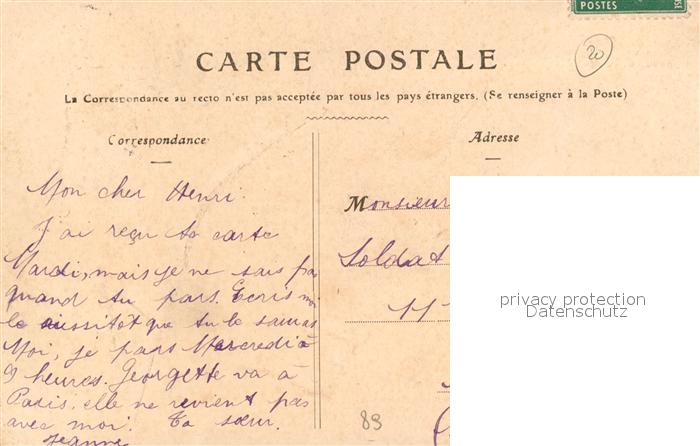 POSTES
20
CARTE POSTALE
La Correspondance au recto n'est pas acceptée par tous les pays étrangers. (Se renseigner à la Poste)
Correspondance
Adresse
Mon cher Henri.
J'ai reçu ta carte
Mardi, mais je ne sais pas
quand tu pars. Ecris moi
le aussitôt que tu le sauras
Moi, je pars Mercredi à
9 heures. Georgette va à
Paris. elle ne revient pas
avec moi. Ta sœur.
Jeanne
Monsieur
Soldat
11
privacy protection
Datenschutz
89